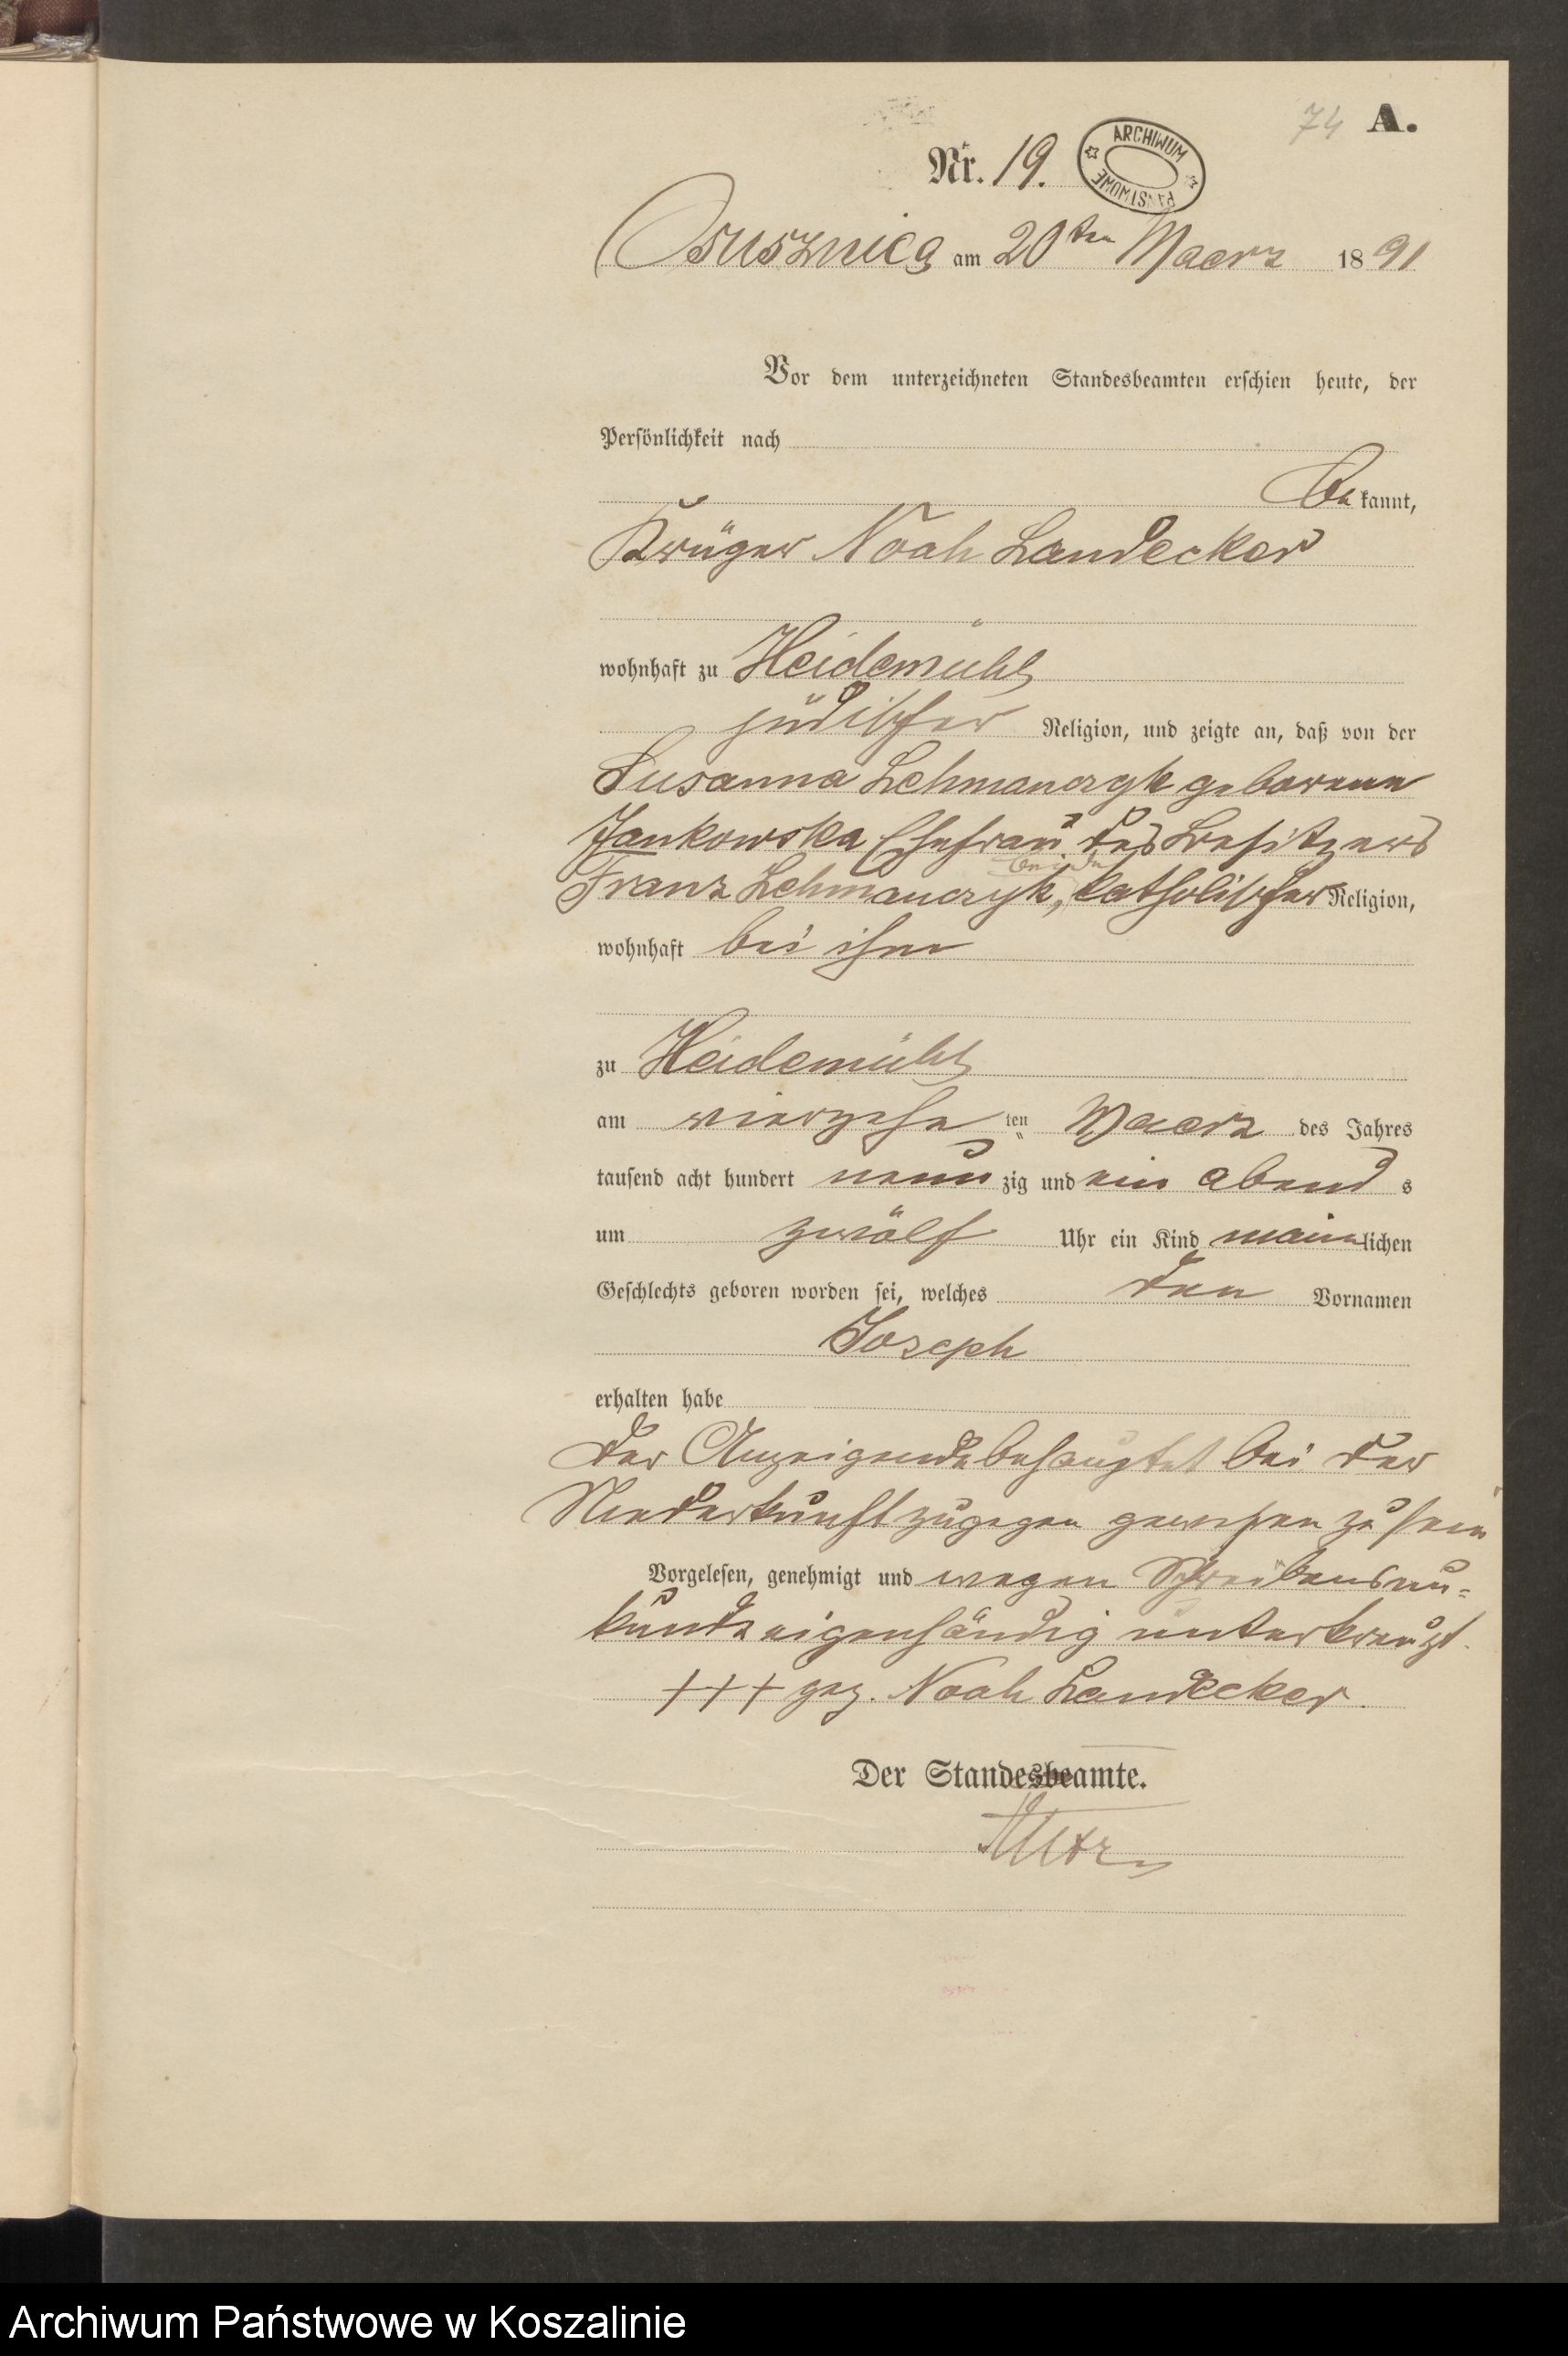 74 A.
Nr. 19.
ARCHIWUM PAŃSTWOWE
Osusznica am 20ten Maerz 1891
Vor dem unterzeichneten Standesbeamten erschien heute, der
Persönlichkeit nach
be kannt,
Krüger Noah Landecker
wohnhaft zu Heidemühl
jüdischer Religion, und zeigte an, daß von der
Susanna Lehmanczyk geborene
Jankowska Ehefrau des Besitzers
beide
Franz Lehmanczyk, katholischer Religion,
wohnhaft bei ihm
zu Heidemühl
am vierzehn ten Maerz des Jahres
tausend acht hundert neun zig und ein abend s
um zwölf Uhr ein Kind männlichen
Geschlechts geboren worden sei, welches den Vornamen
Joseph
erhalten habe
Der Anzeigende behauptet bei der
Niederkunft zugegen gewesen zu sein
Vorgelesen, genehmigt und wegen Schreibensun-
kunde eigenhändig unterkreuzt.
+++ gez. Noah Landecker.
Der Standesbeamte.
Archiwum Państwowe w Koszalinie